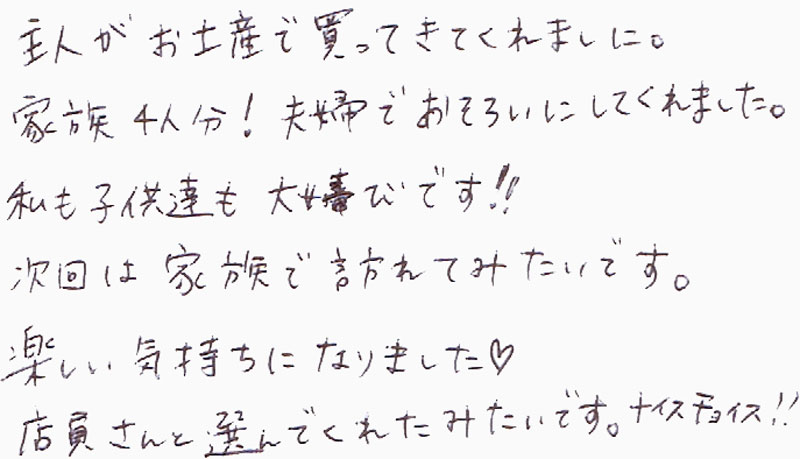 主人がお土産で買ってきてくれました。
家族4人分！夫婦でおそろいにしてくれました。
私も子供達も大喜びです!!
次回は家族で訪れてみたいです。
楽しい気持ちになりました♡
店員さんと選んでくれたみたいです。ナイスチョイス!!